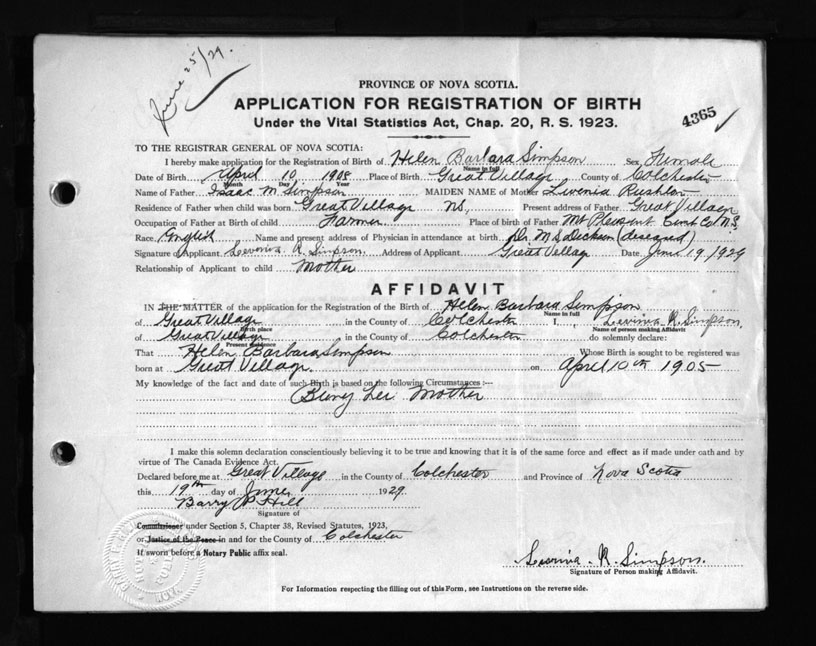 June 25/29.
PROVINCE OF NOVA SCOTIA.
APPLICATION FOR REGISTRATION OF BIRTH
4365
Under the Vital Statistics Act, Chap. 20, R. S. 1923.
TO THE REGISTRAR GENERAL OF NOVA SCOTIA:
I hereby make application for the Registration of Birth of Helen Barbara Simpson Sex Female
Name in full
Date of Birth April 10 1908 Place of Birth Great Village County of Colchester
Month Day Year
Name of Father Isaac M. Simpson MAIDEN NAME of Mother Rushton
Residence of Father when child was born Great Village NS, Present address of Father Great Village
Occupation of Father at Birth of child Farmer Place of birth of Father Mt Pleasant Cumb Co. N.S.
Race English Name and present address of Physician in attendance at birth Dr. M S Dickson (deseased)
Signature of Applicant R. Simpson Address of Applicant Great Village Date June 19/1929
Relationship of Applicant to child Mother
AFFIDAVIT
IN THE MATTER of the application for the Registration of the Birth of Helen Barbara Simpson
Name in full
of Great Village in the County of Colchester I, R. Simpson,
Birth place Name of person making Affidavit
of Great Village in the County of Colchester do solemnly declare:
Present residence
That Helen Barbara Simpson Whose Birth is sought to be registered was
born at Great Village on April 10th 1905
My knowledge of the fact and date of such Birth is based on the following Circumstances:—
Being her Mother
I make this solemn declaration conscientiously believing it to be true and knowing that it is of the same force and effect as if made under oath and by
virtue of The Canada Evidence Act.
Declared before me at Great Village in the County of Colchester and Province of Nova Scotia
this 19th day of June 1929
Barry P. Hill
Signature of
Commissioner under Section 5, Chapter 38, Revised Statutes, 1923,
or Justice of the Peace in and for the County of Colchester
If sworn before a Notary Public affix seal.
R. Simpson.
Signature of Person making Affidavit.
For Information respecting the filling out of this Form, see Instructions on the reverse side.